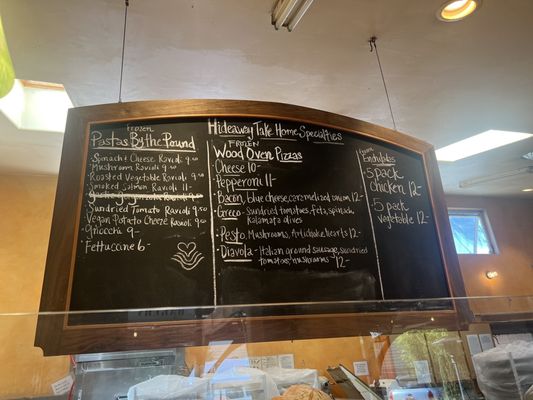 Hideaway Take Home Specialties
Frozen
Pastas By the Pound
Spinach Cheese Ravioli 9.50
Mushroom Ravioli 9.50
Roasted Vegetable Ravioli 9.50
Smoked Salmon Ravioli 11-
Sundried Tomato Ravioli 9.50
Vegan Potato Cheese Ravioli 9.50
Gnocchi 9-
Fettuccine 6-
FROZEN
Wood Oven Pizzas
Cheese 10-
Pepperoni 11-
Bacon, blue cheese, caramelized onion 12-
Greco - Sundried tomatoes, feta, spinach,
Kalamata olives
Pesto, Mushrooms, Artichoke hearts 12-
Diavola - Italian ground sausage, sundried
tomatoes, mushrooms 12-
Frozen
Enchiladas
5 pack
chicken 12-
5 pack
vegetable 12-